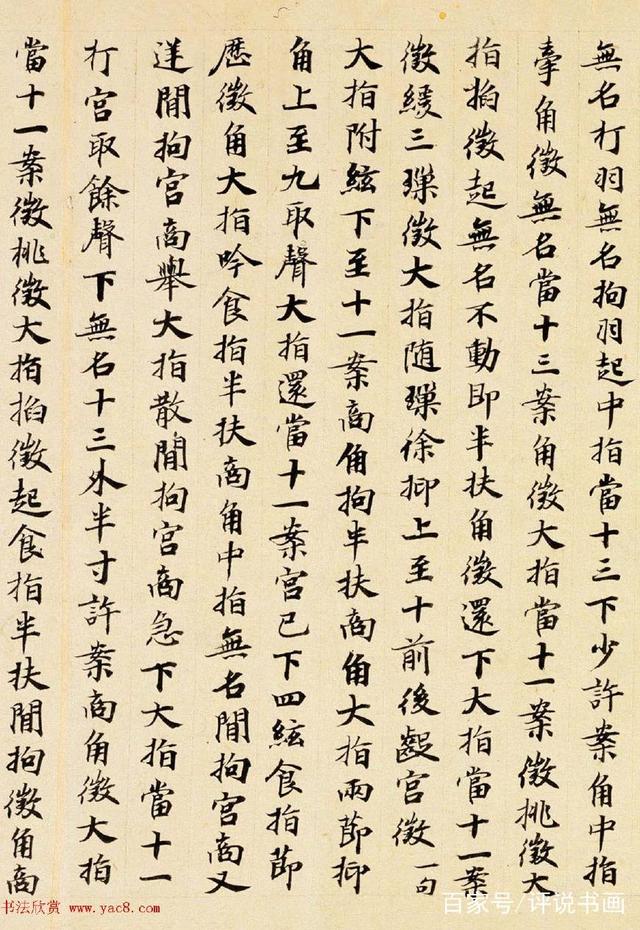 無名打羽無名拘羽起中指當十三下少許案角中指
牽角徵無名當十三案角徵大指當十一案徵挑徵大
指掐徵起無名不動即半扶角徵還下大指當十一案
徵緩三璅徵大指随璅徐抑上至十前後齪宮徵一句
大指附絃下至十一案商角拘半扶商角大指兩節抑
角上至九取聲大指還當十一案宮已下四絃食指節
歷徵角大指吟食指半扶商角中指無名間拘宮商又
間拘宮商舉大指散間拘宮商急下大指當十一
打宮取餘聲下無名十三外半寸許案商角徵大指
當十一案徵挑徵大指掐徵起食指半扶間拘徵角商
书法欣赏 www.yac8.com
百家号/评说书画